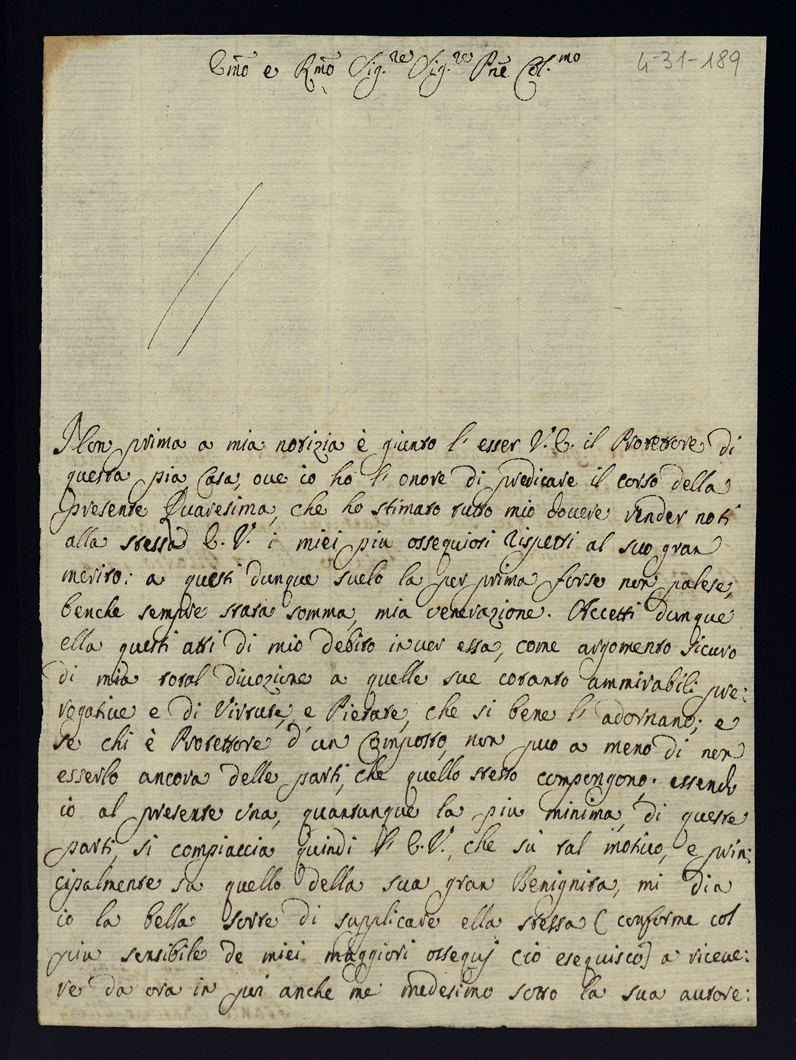 Emo e Rmo Sig.re Sig.re Pne Col.mo
4-31-189
Non prima a mia notizia è giunto l' esser V. E. il Protettore di
questa pia Casa, ove io ho l' onore di predicare il corso della
presente Quaresima, che ho stimato tutto mio dovere render noti
alla stessa E. V. i miei piu ossequiosi rispetti al suo gran
merito: a questi dunque svelo la per prima forse non palese,
benche sempre stata somma, mia venerazione. Accetti dunque
ella questi atti di mio debito inver essa, come argomento sicuro
di mia total divozione a quelle sue cotanto ammirabili pre:
rogative e di Virtute, e Pietate, che si bene l' adornano; e
se chi è Protettore d' un Composto, non puo a meno di non
esserlo ancora delle parti, che quello stesso compongono. essendo
io al presente una, quantunque la piu minima, di queste
parti, si compiaccia quindi l' E. V., che sù tal motivo, e prin:
cipalmente su quello della sua gran Benignita, mi dia
io la bella sorte di supplicare ella stessa (conforme col
piu sensibile de miei maggiori ossequj ciò eseguisco) a riceve:
re da ora in poi anche me medesimo sotto la sua autore: